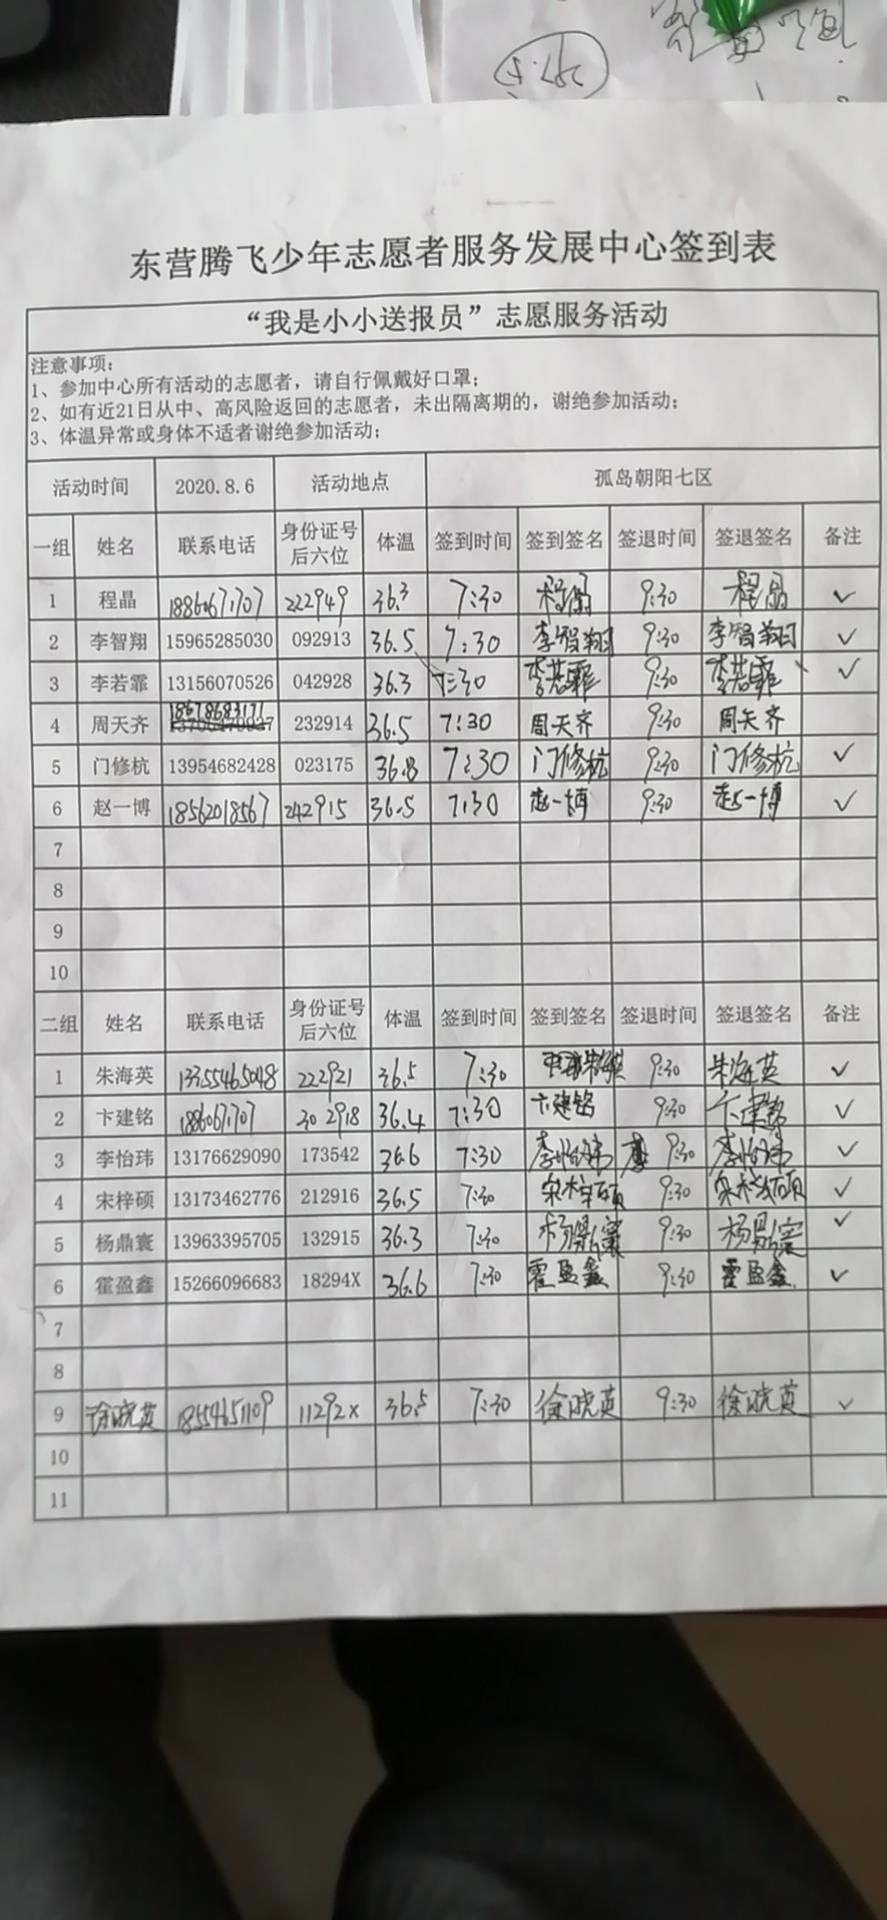 东营腾飞少年志愿者服务发展中心签到表
“我是小小送报员”志愿服务活动
注意事项：
1、参加中心所有活动的志愿者，请自行佩戴好口罩；
2、如有近21日从中、高风险返回的志愿者，未出隔离期的，谢绝参加活动；
3、体温异常或身体不适者谢绝参加活动；
活动时间 2020.8.6 活动地点 孤岛朝阳七区
一组 姓名 联系电话 身份证号后六位 体温 签到时间 签到签名 签退时间 签退签名 备注
1 程晶 222949 36.3 7:30 程晶 9:30 程晶 ✓
2 李智翔 15965285030 092913 36.5 7:30 李智翔 9:30 李智翔 ✓
3 李若霏 13156070526 042928 36.3 7:30 李若霏 9:30 李若霏 ✓
4 周天齐 18678683171 232914 36.5 7:30 周天齐 9:30 周天齐
5 门修杭 13954682428 023175 36.8 7:30 门修杭 9:30 门修杭 ✓
6 赵一博 18562018567 242915 36.5 7:30 赵一博 9:30 赵一博 ✓
7
8
9
10
二组 姓名 联系电话 身份证号后六位 体温 签到时间 签到签名 签退时间 签退签名 备注
1 朱海英 13355465048 222921 36.5 7:30 朱海英 9:30 朱海英 ✓
2 卞建铭 302918 36.4 7:30 卞建铭 9:30 卞建铭 ✓
3 李怡玮 13176629090 173542 36.6 7:30 李怡玮 9:30 李怡玮 ✓
4 宋梓硕 13173462776 212916 36.5 7:30 宋梓硕 9:30 宋梓硕 ✓
5 杨鼎寰 13963395705 132915 36.3 7:30 杨鼎寰 9:30 杨鼎寰 ✓
6 霍盈鑫 15266096683 18294X 36.6 7:30 霍盈鑫 9:30 霍盈鑫 ✓
7
8
9 徐晓英 18554651109 11292X 36.5 7:30 徐晓英 9:30 徐晓英 ✓
10
11